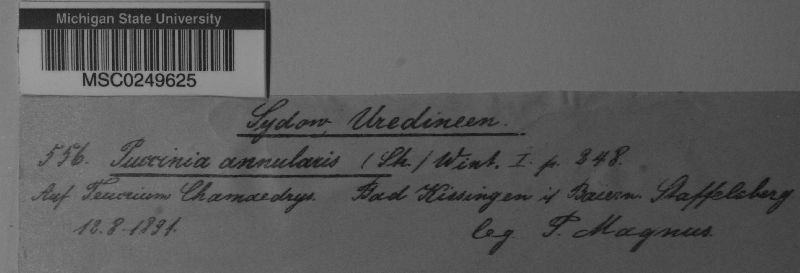 Michigan State University
MSC0249625
Sydow, Uredineen.
556. Puccinia annularis (Str.) Wint. I. p. 348.
Auf Teucrium Chamaedrys. Bad Kissingen Baiern. Staffelsberg
12.8.1891. leg P. Magnus.